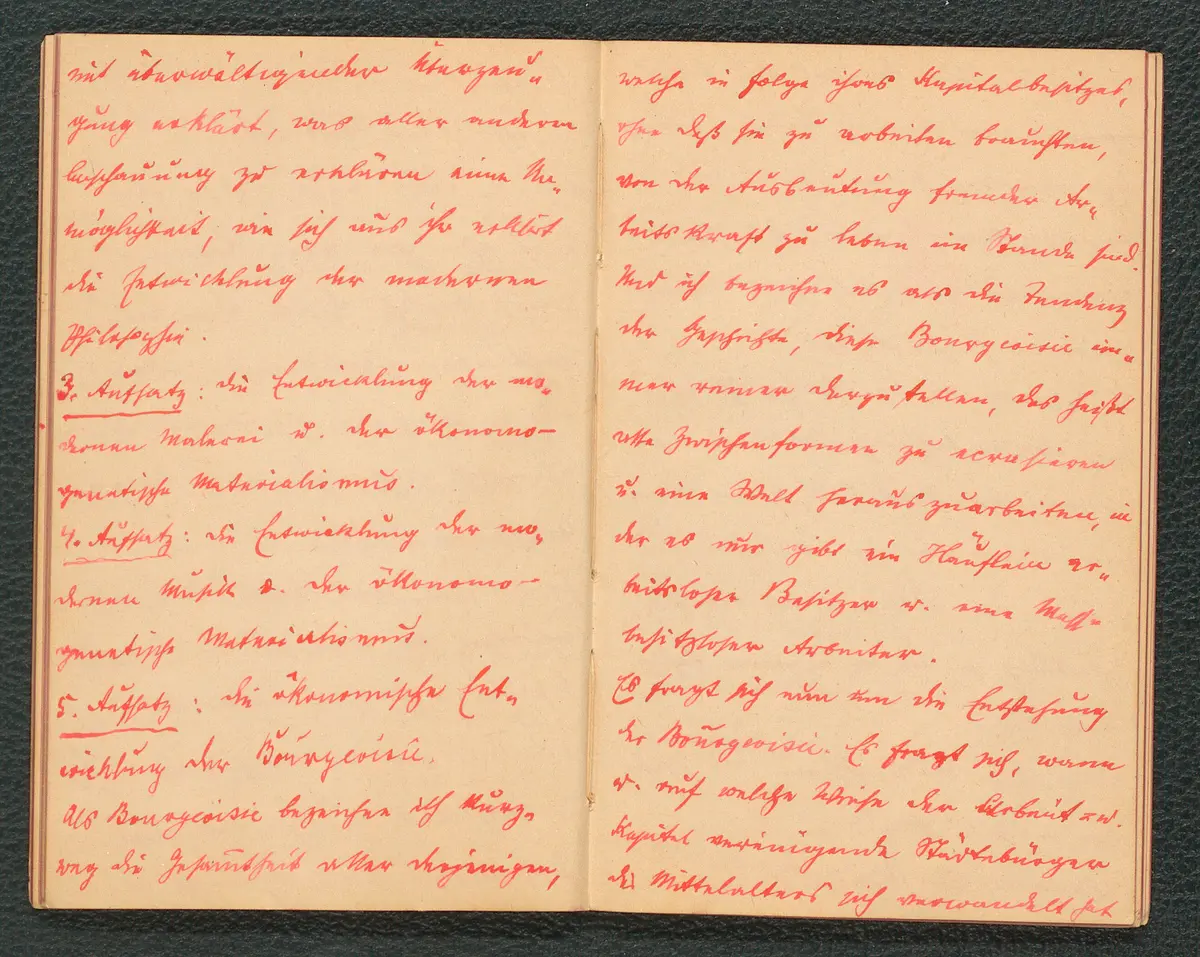 mit überwältigender Überzeu-
gung erklärt, was aller anderen
Anschauung zu erklären eine Un-
möglichkeit, wie sich aus ihr erklärt
die Entwicklung der modernen
Philosophie.
3. Aufsatz: die Entwicklung der mo-
dernen Malerei u. der ökonomo-
genetische Materialismus.
4. Aufsatz: die Entwicklung der mo-
dernen Musik u. der ökonomo-
genetische Materialismus.
5. Aufsatz: die ökonomische Ent-
wicklung der Bourgeoisie.
Als Bourgeoisie bezeichne ich kurz-
weg die Gesamtheit aller derjenigen,
welche in folge ihres Kapitalbesitzes,
ohne daß sie zu arbeiten brauchten,
von der Ausbeutung fremder Ar-
beitskraft zu leben im Stande sind.
Und ich bezeichne es als die Tendenz
der Geschichte, diese Bourgeoisie im-
mer reiner darzustellen, das heißt
alle Zwischenformen zu ecrasieren
u. eine Welt herauszuarbeiten, in
der es nur gibt ein Häuflein ar-
beitsloser Besitzer u. eine Masse
besitzloser Arbeiter.
Es fragt sich nun um die Entstehung
der Bourgeoisie. Es fragt sich, wann
u. auf welche Weise der Arbeit u.
Kapital vereinigende Städtebürger
des Mittelalters sich verwandelt hat